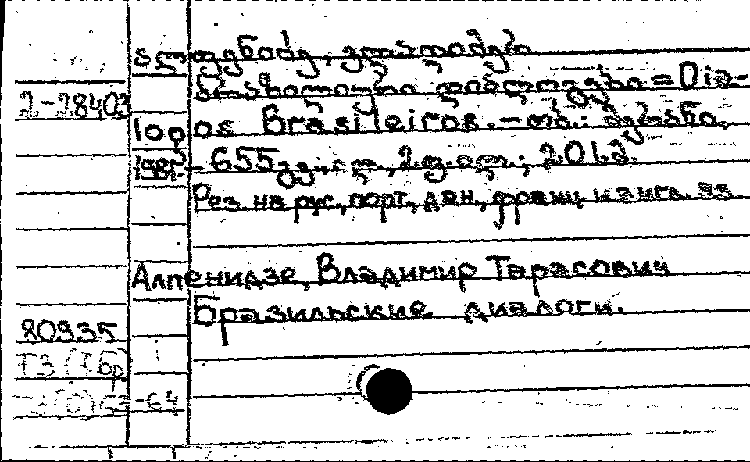 ალფენიძე, ვლადიმერ
ბრაზილიური დიალოგები = Dia-
2-28403
logos Brasileiros. - თბ.: მერანი,
1981. 655 გვ.; ილ., 2 ფ. ილ.; 20 სმ.
Рез. на рус., порт., дан., франц. и англ. яз
Алпенидзе, Владимир Тарасович
Бразильские диалоги.
80935
Т3(7Бр)
-64